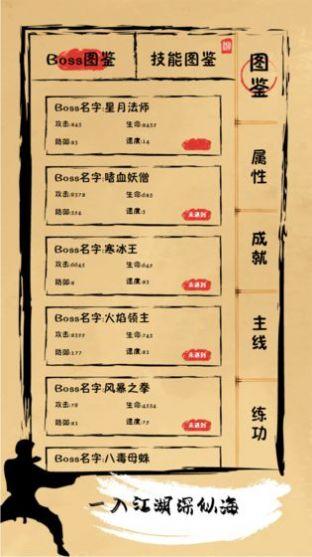 Boss图鉴
技能图鉴
图鉴
Boss名字:星月法师
攻击:845
生命:8457
防御:845
速度:14
Boss名字:嗜血妖僧
攻击:8578
生命:645
防御:254
速度:5
未遇到
Boss名字:寒冰王
攻击:6645
防御:8
速度:82
未遇到
Boss名字:火焰领主
生命:745
防御:177
速度:81
未遇到
Boss名字:风暴之拳
攻击:78
生命:4554
防御:81
速度:75
未遇到
Boss名字:八毒母蛛
属性
成就
主线
练功
一入江湖深似海